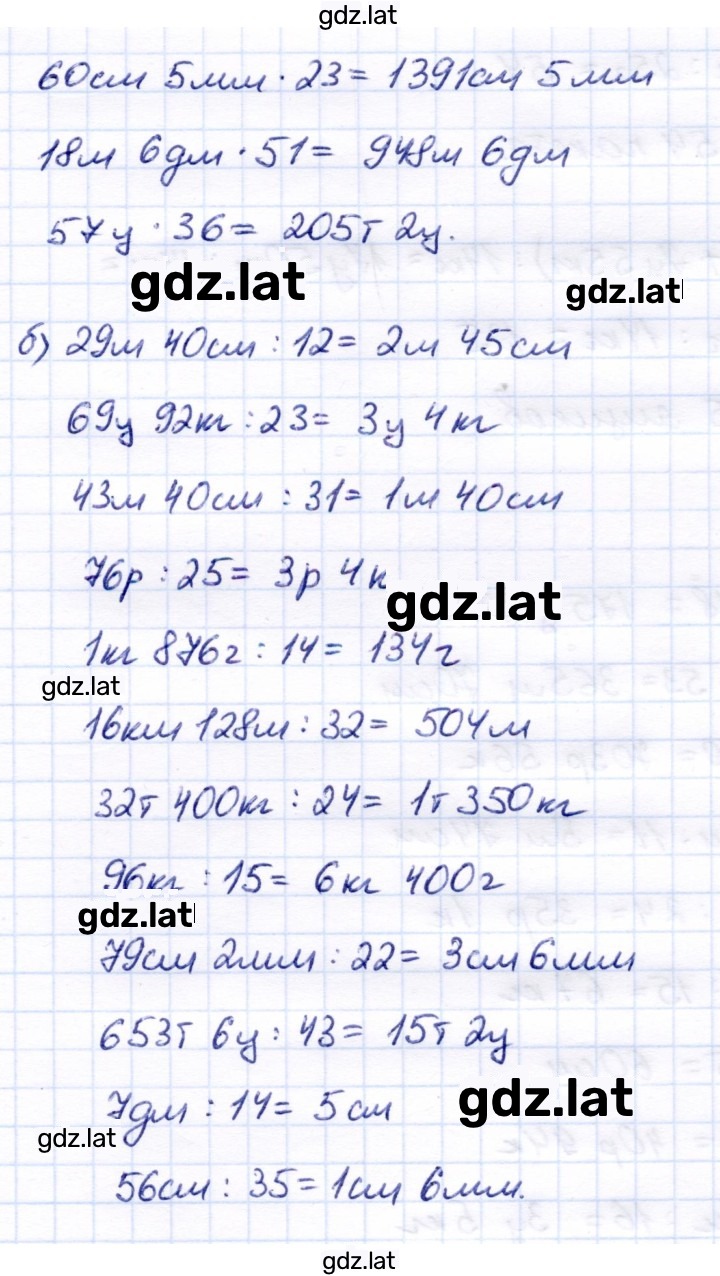 gdz.lat
60см 5мм · 23 = 1391см 5мм
18м 6дм · 51 = 948м 6дм
57ц · 36 = 205т 2ц.
gdz.lat
gdz.lat
б) 29м 40см : 12 = 2м 45см
69ц 92кг : 23 = 3ц 4кг
43м 40см : 31 = 1м 40см
76р : 25 = 3р 4к
gdz.lat
1кг 876г : 14 = 134г
gdz.lat
16км 128м : 32 = 504м
32т 400кг : 24 = 1т 350кг
96кг : 15 = 6кг 400г
gdz.lat
79см 2мм : 22 = 3см 6мм
653т 6ц : 43 = 15т 2ц
7дм : 14 = 5см
gdz.lat
gdz.lat
56см : 35 = 1см 6мм.
gdz.lat